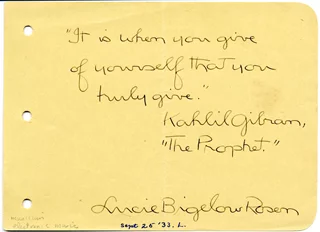 "It is when you give
of yourself that you
truly give."
Kahlil Gibran,
"The Prophet."
Lucie Bigelow Rosen
Sept 25 '33. L.
electronic music